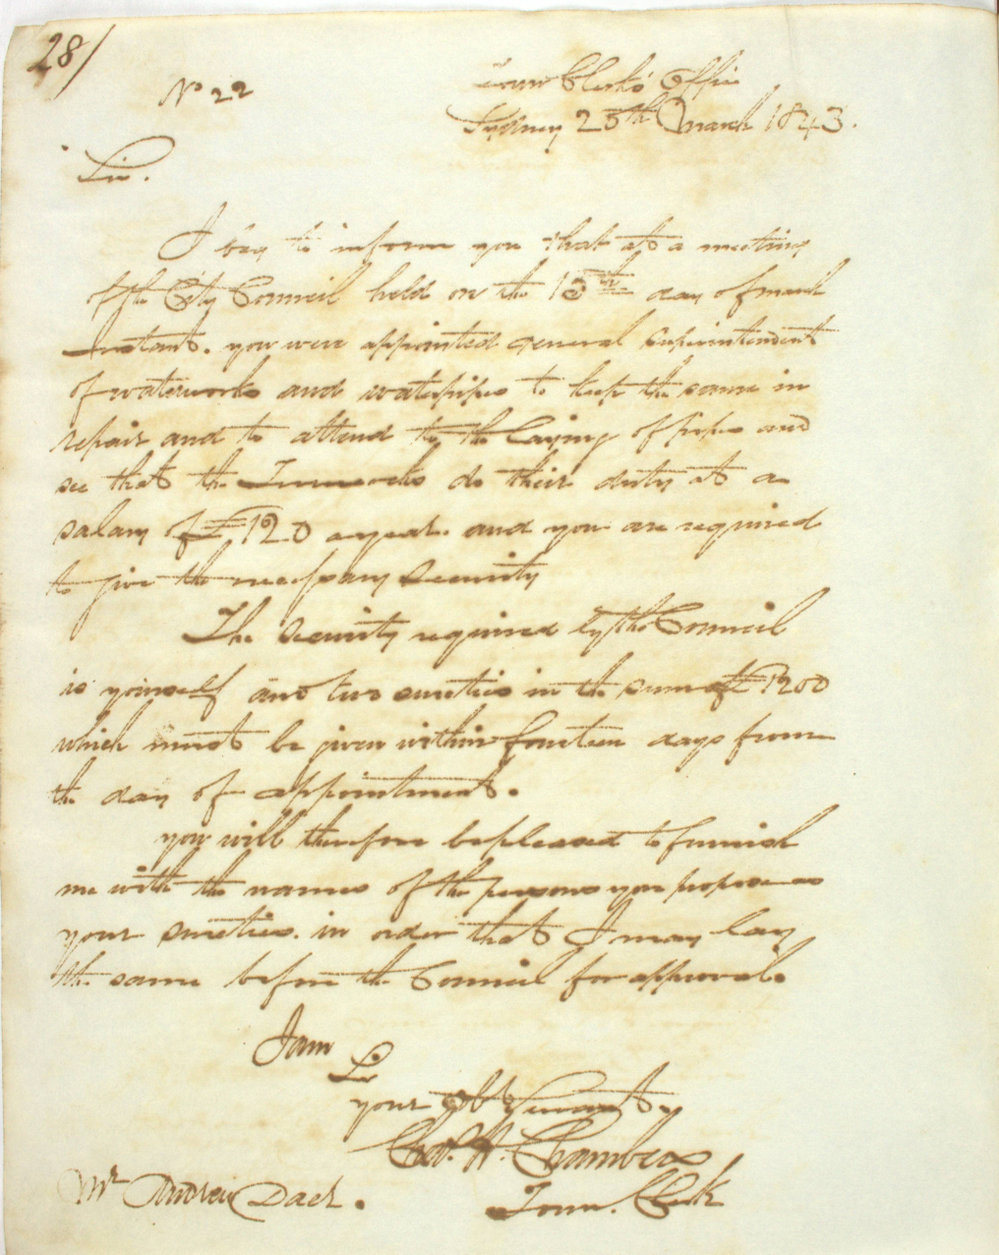 28/
No 22
Town Clerk's Office
Sydney 25th March 1843.
Sir.
I beg to inform you that at a meeting
of the City Council held on the 15th day of March
Instant. you were appointed general superintendent
of waterworks and waterpipes to keep the same in
repair and to attend to the laying of pipes and
see that the Turncocks do their duty at a
salary of £120 a year. and you are required
to give the necessary security
The security required by the Council
is yourself and two sureties in the sum of £1200
which must be given within fourteen days from
the day of appointment.
you will therefore be pleased to furnish
me with the names of the persons you propose as
your sureties. in order that I may lay
the same before the Council for approval.
I am
Sir
your obt Servant
Chas. H. Chambers
Town. Clerk
Mr Andrew